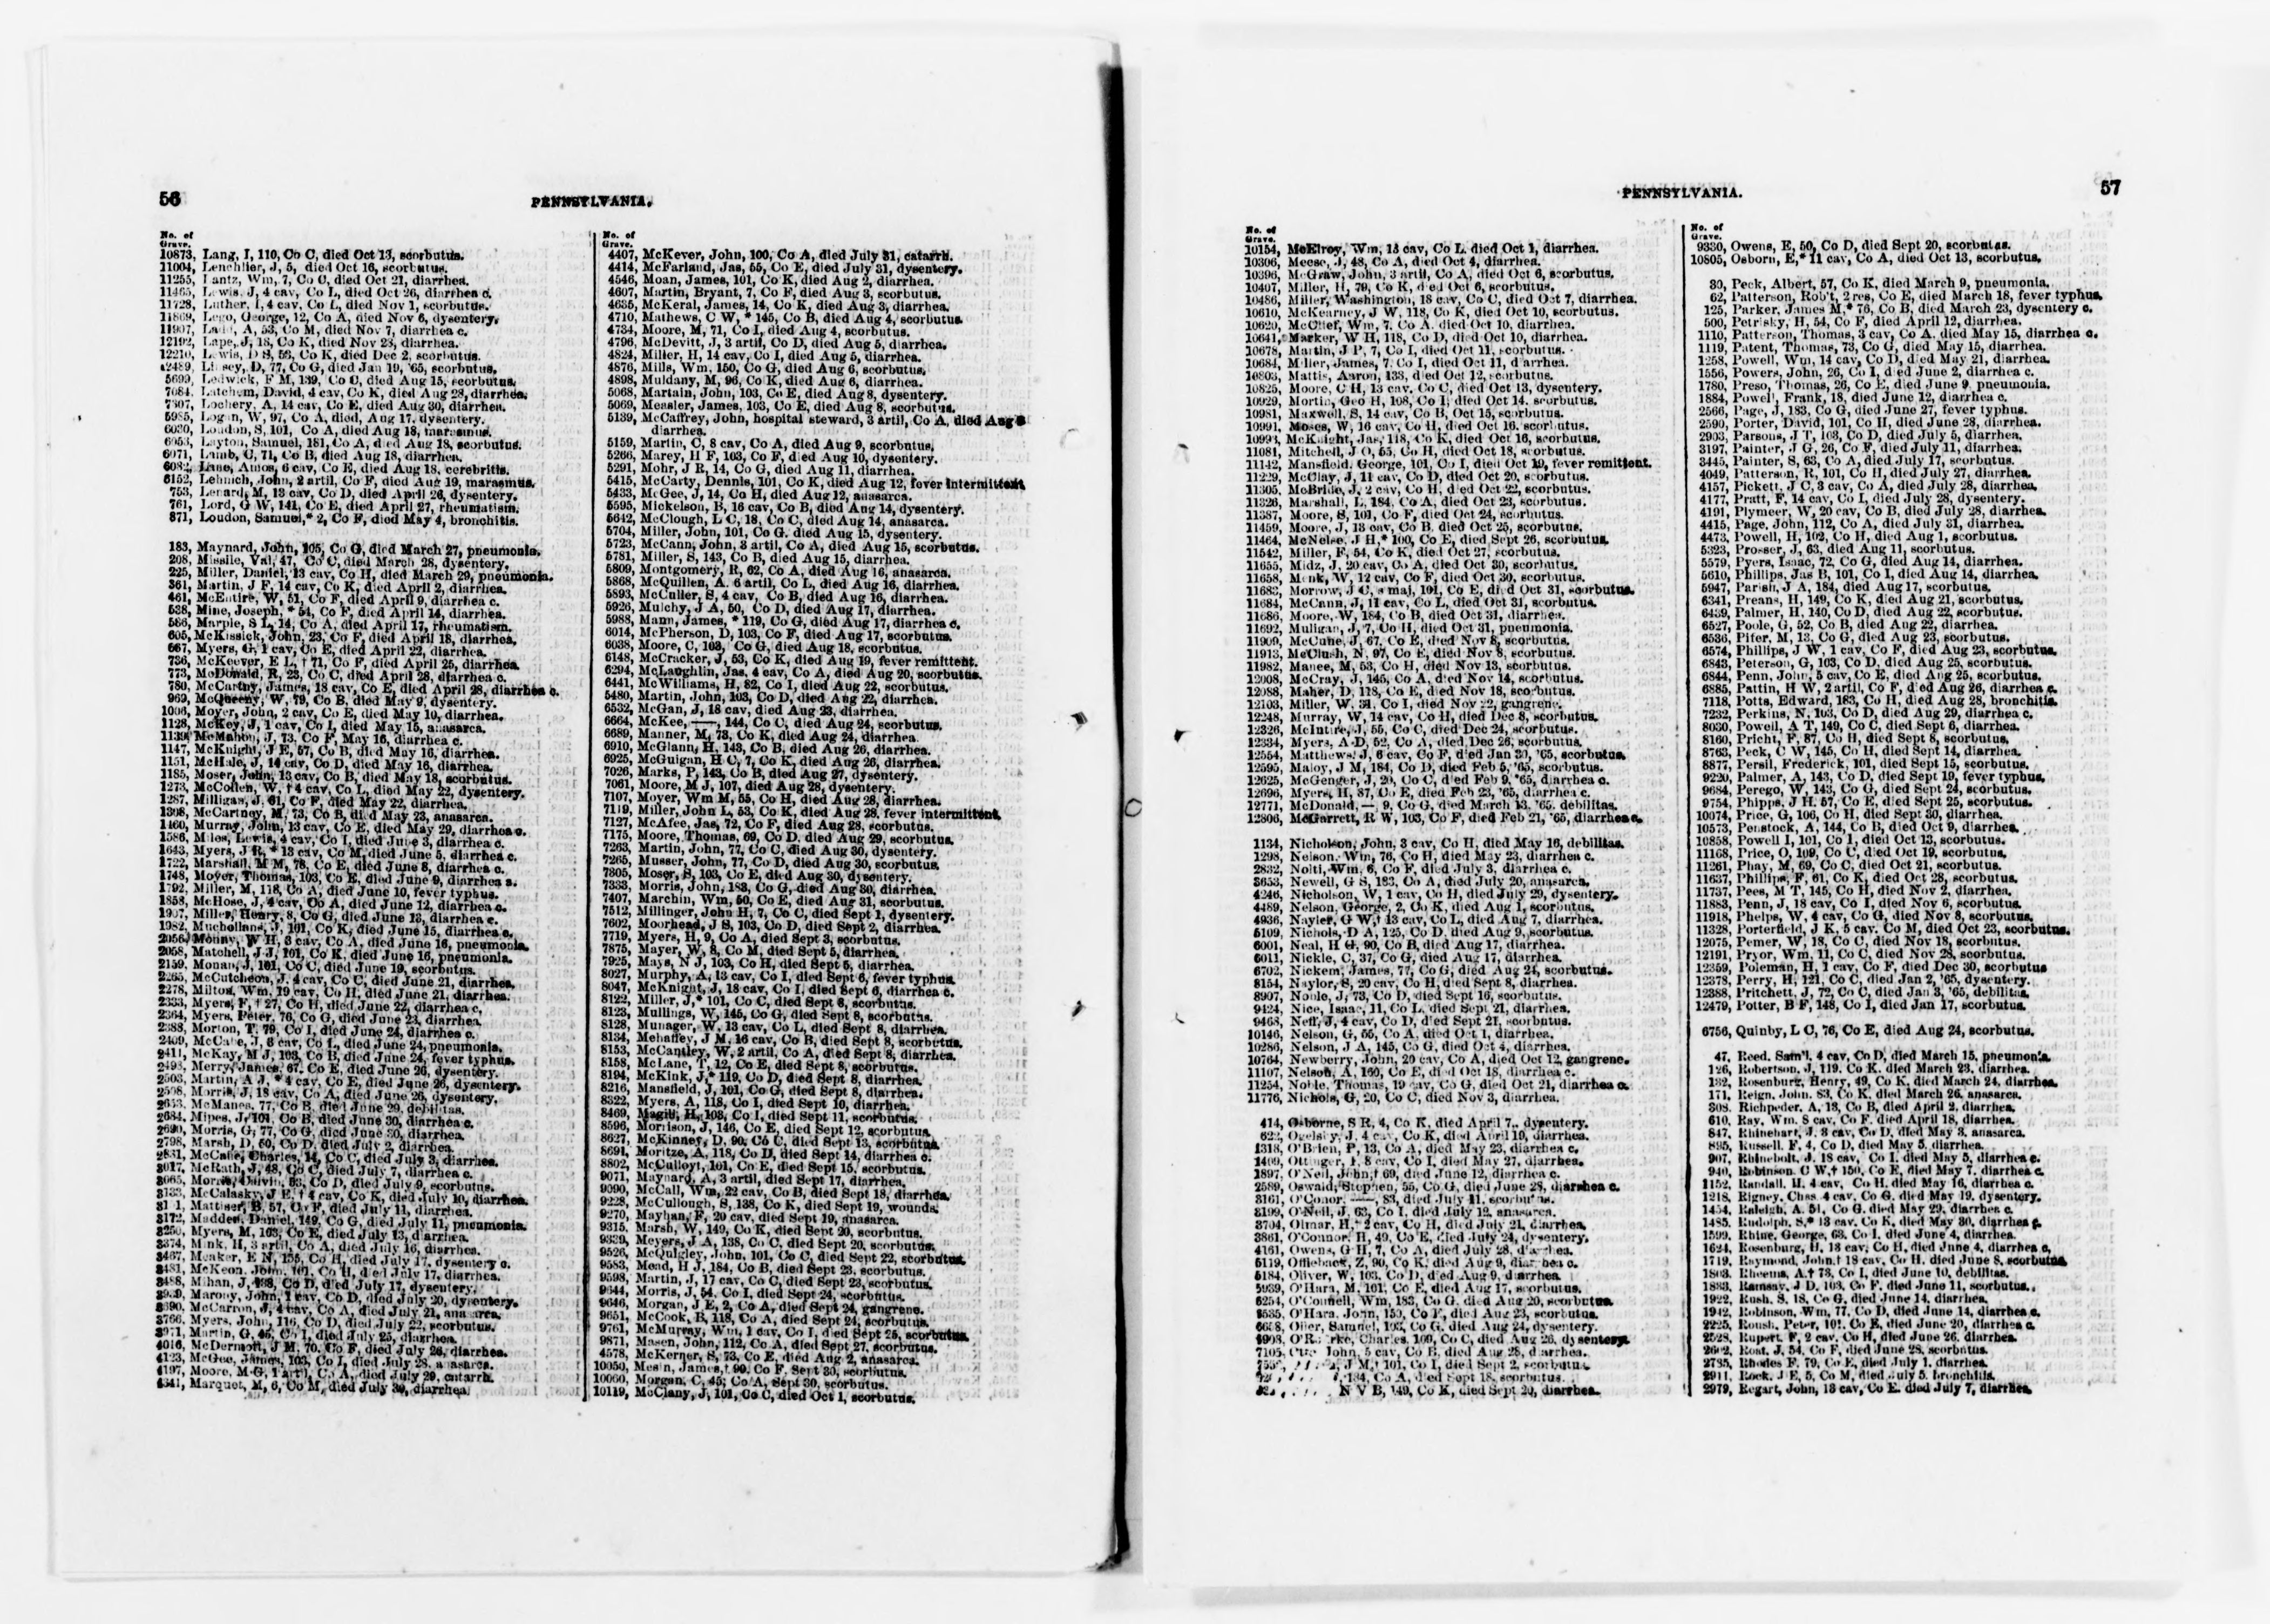 56
PENNSYLVANIA.
No. of
Grave.
10873, Lang, I, 110, Co C, died Oct 13, scorbutus.
11004, Lenchlier, J, 5, died Oct 16, scorbutus.
11255, Lantz, Wm, 7, Co C, died Oct 21, diarrhea.
11465, Lewis, J, 4 cav, Co L, died Oct 26, diarrhea c.
11728, Luther, I, 4 cav, Co L, died Nov 1, scorbutus.
11869, Lego, George, 12, Co A, died Nov 6, dysentery.
11907, A, 53, Co M, died Nov 7, diarrhea c.
12192, Lape, J, 18, Co K, died Nov 23, diarrhea.
12210, Lewis, D S, 53, Co K, died Dec 2, scorbutus.
12489, D, 77, Co G, died Jan 19, '65, scorbutus.
5699, Ledwick, F M, 139, Co C, died Aug 15, scorbutus.
7084, Latchem, David, 4 cav, Co K, died Aug 28, diarrhea.
7307, Lochery, A, 14 cav, Co E, died Aug 30, diarrhea.
5985, Logan, W, 97, Co A, died, Aug 17, dysentery.
6030, Loudon, S, 101, Co A, died Aug 18, marasmus.
6053, Layton, Samuel, 181, Co A, died Aug 18, scorbutus.
6071, Lamb, C, 71, Co B, died Aug 18, diarrhea.
6082, Lane, Amos, 6 cav, Co E, died Aug 18, cerebritis.
6152, Lehnich, John, 2 artil, Co F, died Aug 19, marasmus.
753, Lenard, M, 13 cav, Co D, died April 26, dysentery.
761, Lord, G W, 141, Co E, died April 27, rheumatism.
871, Loudon, Samuel,* 2, Co F, died May 4, bronchitis.
183, Maynard, John, 105, Co G, died March 27, pneumonia.
208, Missile, Val, 47, Co C, died March 28, dysentery.
225, Miller, Daniel, 13 cav, Co H, died March 29, pneumonia.
361, Martin, J F, 14 cav, Co K, died April 2, diarrhea.
461, McEntire, W, 51, Co F, died April 9, diarrhea c.
538, Mine, Joseph, * 54, Co F, died April 14, diarrhea.
586, Marple, S L, 14, Co A, died April 17, rheumatism.
605, McKissick, John, 23, Co F, died April 18, diarrhea.
667, Myers, G, 1 cav, Co E, died April 22, diarrhea.
736, McKeever, E L, † 71, Co F, died April 25, diarrhea.
773, McDonald, R, 23, Co C, died April 28, diarrhea c.
780, McCarthy, James, 18 cav, Co E, died April 28, diarrhea c.
969, McQueeny, W, 79, Co B, died May 9, dysentery.
1006, Moyer, John, 2 cav, Co E, died May 10, diarrhea.
1128, McKey, J, 1 cav, Co I, died May 15, anasarca.
1139, McMahon, J, 73, Co F, May 16, diarrhea c.
1147, McKnight, J E, 57, Co B, died May 16, diarrhea.
1151, McHale, J, 14 cav, Co D, died May 16, diarrhea.
1185, Moser, John, 13 cav, Co B, died May 18, scorbutus.
1273, McCollen, W, † 4 cav, Co L, died May 22, dysentery.
1287, Milligan, J, 61, Co F, died May 22, diarrhea.
1308, McCartney, M, 73, Co B, died May 23, anasarca.
1160, Murray, John, 13 cav, Co E, died May 29, diarrhea c.
1586, Miles, Lewis, 4 cav, Co I, died June 3, diarrhea c.
1643, Myers, J R, * 13 cav, Co M, died June 5, diarrhea c.
1722, Marshall, M M, 78, Co E, died June 8, diarrhea c.
1748, Moyer, Thomas, 103, Co E, died June 9, diarrhea a.
1792, Miller, M, 118, Co A, died June 10, fever typhus.
1858, McHose, J, 4 cav, Co A, died June 12, diarrhea c.
1907, Miller, Henry, 8, Co G, died June 13, diarrhea c.
1982, Mucholland, J, 101, Co K, died June 15, diarrhea c.
2056, W H, 3 cav, Co A, died June 16, pneumonia.
2058, Matchell, J J, 101, Co K, died June 16, pneumonia.
2159, Monan, J, 101, Co C, died June 19, scorbutus.
2265, McCutcheon, J, 4 cav, Co C, died June 21, diarrhea.
2278, Milton, Wm, 19 cav, Co H, died June 21, diarrhea.
2333, Myers, F, † 27, Co H, died June 22, diarrhea c.
2364, Myers, Peter, 76, Co G, died June 23, diarrhea.
2388, Morton, T, 79, Co I, died June 24, diarrhea c.
2409, McCabe, J, 8 cav, Co L, died June 24, pneumonia.
2411, McKay, M J, 103, Co B, died June 24, fever typhus.
2493, Merry, James, 67, Co E, died June 26, dysentery.
2503, Martin, A J, * 4 cav, Co E, died June 26, dysentery.
2508, Morris, J, 18 cav, Co A, died June 26, dysentery.
2653, McManes, 77, Co B, died June 29, debilitas.
2684, Mipes, J, 101, Co B, died June 30, diarrhea c.
2690, Morris, G, 77, Co G, died June 30, diarrhea.
2798, Marsh, D, 50, Co D, died July 2, diarrhea.
2831, McCabe, Charles, 14, Co C, died July 3, diarrhea.
3017, McRath, J, 48, Co C, died July 7, diarrhea c.
3065, Morris, Calvin, 53, Co D, died July 9, scorbutus.
3133, McCalasky, J E, † 4 cav, Co K, died July 10, diarrhea.
Mattiser, B, 57, Co F, died July 11, diarrhea.
3172, Madden, Daniel, 149, Co G, died July 11, pneumonia.
3250, Myers, M, 103, Co E, died July 13, diarrhea.
3374, Mink, H, 3 artil, Co A, died July 16, diarrhea.
3467, Meaker, E N, 155, Co H, died July 17, dysentery c.
3481, McKeon, John, 101, Co H, died July 17, diarrhea.
3488, Mihan, J, 138, Co D, died July 17, dysentery.
Marony, John, 1 cav, Co D, died July 20, dysentery.
3690, McCarron, J, 4 cav, Co A, died July 21, anasarca.
3766, Myers, John, 116, Co D, died July 22, scorbutus.
3971, Martin, G, 45, Co I, died July 25, diarrhea.
4016, McDermott, J M, 70, Co F, died July 26, diarrhea.
4123, McGee, James, 103, Co I, died July 28, anasarca.
4197, Moore, M G, 1 artil, Co A, died July 29, catarrh.
4341, Marquet, M, 6, Co M, died July 30, diarrhea.
No. of
Grave.
4407, McKever, John, 100, Co A, died July 31, catarrh.
4414, McFarland, Jas, 55, Co E, died July 31, dysentery.
4546, Moan, James, 101, Co K, died Aug 2, diarrhea.
4607, Martin, Bryant, 7, Co F, died Aug 3, scorbutus.
4635, McKeral, James, 14, Co K, died Aug 3, diarrhea.
4710, Mathews, C W, * 145, Co B, died Aug 4, scorbutus.
4734, Moore, M, 71, Co I, died Aug 4, scorbutus.
4796, McDevitt, J, 3 artil, Co D, died Aug 5, diarrhea.
4824, Miller, H, 14 cav, Co I, died Aug 5, diarrhea.
4876, Mills, Wm, 150, Co G, died Aug 6, scorbutus.
4898, Muldany, M, 96, Co K, died Aug 6, diarrhea.
5068, Martain, John, 103, Co E, died Aug 8, dysentery.
5069, Measler, James, 103, Co E, died Aug 8, scorbutus.
5139, McCaffrey, John, hospital steward, 3 artil, Co A, died Aug 8
diarrhea.
5159, Martin, C, 8 cav, Co A, died Aug 9, scorbutus.
5266, Marey, H F, 103, Co F, died Aug 10, dysentery.
5291, Mohr, J R, 14, Co G, died Aug 11, diarrhea.
5415, McCarty, Dennis, 101, Co K, died Aug 12, fever intermittent
5433, McGee, J, 14, Co H, died Aug 12, anasarca.
5595, Mickelson, B, 16 cav, Co B, died Aug 14, dysentery.
5642, McClough, L C, 18, Co C, died Aug 14, anasarca.
5704, Miller, John, 101, Co G, died Aug 15, dysentery.
5723, McCann, John, 3 artil, Co A, died Aug 15, scorbutus.
5781, Miller, S, 143, Co B, died Aug 15, diarrhea.
5809, Montgomery, R, 62, Co A, died Aug 16, anasarca.
5868, McQuillen, A, 6 artil, Co L, died Aug 16, diarrhea.
5893, McCuller, S, 4 cav, Co B, died Aug 16, diarrhea.
5926, Mulchy, J A, 50, Co D, died Aug 17, diarrhea.
5988, Mann, James, * 119, Co G, died Aug 17, diarrhea c.
6014, McPherson, D, 103, Co F, died Aug 17, scorbutus.
6038, Moore, C, 103, Co G, died Aug 18, scorbutus.
6148, McCracker, J, 53, Co K, died Aug 19, fever remittent.
6294, McLaughlin, Jas, 4 cav, Co A, died Aug 20, scorbutus.
6441, McWilliams, H, 82, Co I, died Aug 22, scorbutus.
5480, Martin, John, 103, Co D, died Aug 22, diarrhea.
6532, McGan, J, 18 cav, died Aug 23, diarrhea.
6664, McKee, ——, 144, Co C, died Aug 24, scorbutus.
6689, Manner, M, 73, Co K, died Aug 24, diarrhea.
6910, McGlann, H, 143, Co B, died Aug 26, diarrhea.
6925, McGuigan, H C, 7, Co K, died Aug 26, diarrhea.
7026, Marks, P, 143, Co B, died Aug 27, dysentery.
7061, Moore, M J, 107, died Aug 28, dysentery.
7107, Moyer, Wm M, 55, Co H, died Aug 28, diarrhea.
7119, Miller, John L, 53, Co K, died Aug 28, fever intermittent.
7127, McAfee, Jas, 72, Co F, died Aug 28, scorbutus.
7175, Moore, Thomas, 69, Co D, died Aug 29, scorbutus.
7263, Martin, John, 77, Co C, died Aug 30, dysentery.
7265, Musser, John, 77, Co D, died Aug 30, scorbutus.
7305, Moser, S, 103, Co E, died Aug 30, dysentery.
7333, Morris, John, 183, Co G, died Aug 30, diarrhea.
7407, Marchin, Wm, 50, Co E, died Aug 31, scorbutus.
7512, Millinger, John H, 7, Co C, died Sept 1, dysentery.
7602, Moorhead, J S, 103, Co D, died Sept 2, diarrhea.
7719, Myers, H, 9, Co A, died Sept 3, scorbutus.
7875, Mayer, W, 8, Co M, died Sept 5, diarrhea.
7925, Mays, N J, 103, Co H, died Sept 5, diarrhea.
8027, Murphy, A, 13 cav, Co I, died Sept 6, fever typhus.
8047, McKnight, J, 18 cav, Co I, died Sept 6, diarrhea c.
8122, Miller, J,* 101, Co C, died Sept 8, scorbutus.
8123, Mullings, W, 145, Co G, died Sept 8, scorbutus.
8128, Munager, W, 13 cav, Co L, died Sept 8, diarrhea.
8134, Mehaffey, J M, 16 cav, Co B, died Sept 8, scorbutus.
8153, McCantley, W, 2 artil, Co A, died Sept 8, diarrhea.
8158, McLane, T, 12, Co E, died Sept 8, scorbutus.
8194, McKink, J,* 119, Co D, died Sept 8, diarrhea.
8216, Mansfield, J, 101, Co G, died Sept 8, diarrhea.
8322, Myers, A, 118, Co I, died Sept 10, diarrhea.
8469, Magill, H, 103, Co I, died Sept 11, scorbutus.
8596, Morrison, J, 146, Co E, died Sept 12, scorbutus.
8627, McKinney, D, 90, Co C, died Sept 13, scorbutus.
8691, Moritze, A, 118, Co D, died Sept 14, diarrhea c.
8802, McCulloyt, 101, Co E, died Sept 15, scorbutus.
9071, Maynard, A, 3 artil, died Sept 17, diarrhea.
9090, McCall, Wm, 22 cav, Co B, died Sept 18, diarrhea.
9228, McCullough, S, 138, Co K, died Sept 19, wounds.
9270, Mayhan, F, 20 cav, died Sept 19, anasarca.
9315, Marsh, W, 149, Co K, died Sept 20, scorbutus.
9339, Meyers, J A, 138, Co C, died Sept 20, scorbutus.
9526, McQuigley, John, 101, Co C, died Sept 22, scorbutus.
9583, Mead, H J, 184, Co B, died Sept 23, scorbutus.
9598, Martin, J, 17 cav, Co C, died Sept 23, scorbutus.
9644, Morris, J, 54, Co I, died Sept 24, scorbutus.
9646, Morgan, J E, 2, Co A, died Sept 24, gangrene.
9651, McCook, B, 118, Co A, died Sept 24, scorbutus.
9761, McMurray, Wm, 1 cav, Co I, died Sept 25, scorbutus.
9871, Mason, John, 112, Co A, died Sept 27, scorbutus.
4578, McKerner, S, 73, Co E, died Aug 2, anasarca.
10050, Mesin, James,† 90, Co F, Sept 30, scorbutus.
10060, Morgan, C, 45, Co A, Sept 30, scorbutus.
10119, McClany, J, 101, Co C, died Oct 1, scorbutus.
PENNSYLVANIA.
57
No. of
Grave.
10154, McElroy, Wm, 13 cav, Co L, died Oct 1, diarrhea.
10306, Meese, J, 48, Co A, died Oct 4, diarrhea.
10396, McGraw, John, 3 artil, Co A, died Oct 6, scorbutus.
10407, Miller, H, 79, Co K, died Oct 6, scorbutus.
10486, Miller, Washington, 18 cav, Co C, died Oct 7, diarrhea.
10610, McKearney, J W, 118, Co K, died Oct 10, scorbutus.
10620, McClief, Wm, 7, Co A, died Oct 10, diarrhea.
10641, Marker, W H, 118, Co D, died Oct 10, diarrhea.
10678, Martin, J P, 7, Co I, died Oct 11, scorbutus.
10684, Miller, James, 7, Co I, died Oct 11, diarrhea.
10803, Mattis, Aaron, 138, died Oct 12, scorbutus.
10825, Moore, C H, 13 cav, Co C, died Oct 13, dysentery.
10929, Mortin, Geo H, 108, Co I, died Oct 14, scorbutus.
10981, Maxwell, S, 14 cav, Co B, Oct 15, scorbutus.
10991, Moses, W, 16 cav, Co H, died Oct 16, scorbutus.
10993, McKnight, Jas, 118, Co K, died Oct 16, scorbutus.
11081, Mitchell, J O, 55, Co H, died Oct 18, scorbutus.
11142, Mansfield, George, 101, Co I, died Oct 19, fever remittent.
11229, McClay, J, 11 cav, Co D, died Oct 20, scorbutus.
11305, McBride, J, 2 cav, Co H, died Oct 22, scorbutus.
11326, Marshall, L, 184, Co A, died Oct 23, scorbutus.
11387, Moore, S, 101, Co F, died Oct 24, scorbutus.
11459, Moore, J, 13 cav, Co B, died Oct 25, scorbutus.
11464, McNelse, J H,* 100, Co E, died Sept 26, scorbutus.
11542, Miller, F, 54, Co K, died Oct 27, scorbutus.
11655, Midz, J, 20 cav, Co A, died Oct 30, scorbutus.
11658, Monk, W, 12 cav, Co F, died Oct 30, scorbutus.
11683, Morrow, J C, s maj, 101, Co E, died Oct 31, scorbutus.
11684, McCann, J, 11 cav, Co L, died Oct 31, scorbutus.
11686, Moore, W, 184, Co B, died Oct 31, diarrhea.
11692, Muligan, J, 7, Co H, died Oct 31, pneumonia.
11909, McCune, J, 67, Co E, died Nov 8, scorbutus.
11913, McClush, N, 97, Co E, died Nov 8, scorbutus.
11982, Manee, M, 53, Co H, died Nov 13, scorbutus.
12008, McCray, J, 145, Co A, died Nov 14, scorbutus.
12088, Maher, D, 118, Co E, died Nov 18, scorbutus.
12103, Miller, W, 31, Co I, died Nov 22, gangrene.
12248, Murray, W, 14 cav, Co H, died Dec 8, scorbutus.
12326, McIntire, J, 55, Co C, died Dec 24, scorbutus.
12334, Myers, A D, 52, Co A, died Dec 26, scorbutus.
12554, Matthews, J, 6 cav, Co F, died Jan 30, '65, scorbutus.
12595, Maloy, J M, 184, Co D, died Feb 5, '65, scorbutus.
12625, McGenger, J, 20, Co C, died Feb 9, '65, diarrhea c.
12696, Myers, H, 87, Co E, died Feb 23, '65, diarrhea c.
12771, McDonald, —, 9, Co G, died March 13, '65, debilitas.
12806, McGarrett, R W, 103, Co F, died Feb 21, '65, diarrhea c.
1134, Nicholson, John, 3 cav, Co H, died May 16, debilitas.
1298, Nelson, Wm, 76, Co H, died May 23, diarrhea c.
2832, Nolti, Wm, 6, Co F, died July 3, diarrhea c.
3653, Newell, G S, 183, Co A, died July 20, anasarca.
4246, Nicholson, W, 1 cav, Co H, died July 29, dysentery.
4489, Nelson, George, 2, Co K, died Aug 1, scorbutus.
4936, Nayler, G W,† 13 cav, Co L, died Aug 7, diarrhea.
5109, Nichols, D A, 125, Co D, died Aug 9, scorbutus.
6001, Neal, H G, 90, Co B, died Aug 17, diarrhea.
6011, Nickle, C, 37, Co G, died Aug 17, diarrhea.
6702, Nickem, James, 77, Co G, died Aug 24, scorbutus.
8154, Naylor, S, 20 cav, Co H, died Sept 8, diarrhea.
8907, Noble, J, 73, Co D, died Sept 16, scorbutus.
9424, Nice, Isaac, 11, Co L, died Sept 21, diarrhea.
9468, Neff, J, 4 cav, Co D, died Sept 21, scorbutus.
10146, Nelson, G, 55, Co A, died Oct 1, diarrhea.
10286, Nelson, J A, 145, Co G, died Oct 4, diarrhea.
10764, Newberry, John, 20 cav, Co A, died Oct 12, gangrene.
11107, Nelson, A, 160, Co E, died Oct 18, diarrhea.
11254, Noble, Thomas, 19 cav, Co G, died Oct 21, diarrhea c.
11776, Nichols, G, 20, Co C, died Nov 3, diarrhea.
414, Osborne, S R, 4, Co K, died April 7, dysentery.
J, 4 cav, Co K, died April 19, diarrhea.
1318, O'Brien, P, 13, Co A, died May 23, diarrhea c.
1409, Ottinger, I, 8 cav, Co I, died May 27, diarrhea.
1897, O'Neil, John,† 69, died June 12, diarrhea c.
2589, Oswald, Stephen, 55, Co G, died June 28, diarrhea c.
3161, O'Conor, ——, 83, died July 11, scorbutus.
3199, O'Neil, J, 63, Co I, died July 12, anasarca.
3704, Olmar, H,* 2 cav, Co H, died July 21, diarrhea.
3861, O'Connor, H, 49, Co E, died July 24, dysentery.
4161, Owens, G H, 7, Co A, died July 28, diarrhea.
5119, Offieback, Z, 90, Co K, died Aug 9, diarrhea c.
5184, Oliver, W, 103, Co D, died Aug 9, diarrhea
5939, O'Hara, M, 101, Co E, died Aug 17, scorbutus.
6254, O'Connell, Wm, 183, Co G, died Aug 20, scorbutus.
6535, O'Hara, John, 150, Co F, died Aug 23, scorbutus.
6668, Oiler, Samuel, 103, Co G, died Aug 24, dysentery.
6908, Charles, 109, Co C, died Aug 26, dysentery.
7105, John, 5 cav, Co B, died Aug 28, diarrhea.
J M,† 101, Co I, died Sept 2, scorbutus.
184, Co A, died Sept 18, scorbutus.
N V B, 149, Co K, died Sept 20, diarrhea.
No. of
Grave.
9330, Owens, E, 50, Co D, died Sept 20, scorbutus.
10805, Osborn, E,* 11 cav, Co A, died Oct 13, scorbutus.
30, Peck, Albert, 57, Co K, died March 9, pneumonia.
62, Patterson, Rob't, 2 res, Co E, died March 18, fever typhus.
125, Parker, James M,* 76, Co B, died March 23, dysentery c.
500, Petrisky, H, 54, Co F, died April 12, diarrhea.
1110, Patterson, Thomas, 3 cav, Co A, died May 15, diarrhea c.
1119, Patent, Thomas, 73, Co G, died May 15, diarrhea.
1258, Powell, Wm, 14 cav, Co D, died May 21, diarrhea.
1556, Powers, John, 26, Co I, died June 2, diarrhea c.
1780, Preso, Thomas, 26, Co E, died June 9, pneumonia.
1884, Powell, Frank, 18, died June 12, diarrhea c.
2566, Page, J, 183, Co G, died June 27, fever typhus.
2590, Porter, David, 101, Co H, died June 28, diarrhea.
2903, Parsons, J T, 103, Co D, died July 5, diarrhea.
3197, Painter, J G, 26, Co F, died July 11, diarrhea.
3445, Painter, S, 63, Co A, died July 17, scorbutus.
4049, Patterson, R, 101, Co H, died July 27, diarrhea.
4157, Pickett, J C, 3 cav, Co A, died July 28, diarrhea.
4177, Pratt, F, 14 cav, Co I, died July 28, dysentery.
4191, Plymeer, W, 20 cav, Co B, died July 28, diarrhea.
4415, Page, John, 112, Co A, died July 31, diarrhea.
4473, Powell, H, 102, Co H, died Aug 1, scorbutus.
5323, Prosser, J, 63, died Aug 11, scorbutus.
5579, Pyers, Isaac, 72, Co G, died Aug 14, diarrhea.
5610, Phillips, Jas B, 101, Co I, died Aug 14, diarrhea.
5947, Parish, J A, 184, died Aug 17, scorbutus.
6341, Preans, H, 149, Co K, died Aug 21, scorbutus.
6439, Palmer, H, 140, Co D, died Aug 22, scorbutus.
6527, Poole, G, 52, Co B, died Aug 22, diarrhea.
6536, Pifer, M, 13, Co G, died Aug 23, scorbutus.
6574, Phillips, J W, 1 cav, Co F, died Aug 23, scorbutus.
6843, Peterson, G, 103, Co D, died Aug 25, scorbutus.
6844, Penn, John, 5 cav, Co E, died Aug 25, scorbutus.
6885, Pattin, H W, 2 artil, Co F, died Aug 26, diarrhea c.
7118, Potts, Edward, 183, Co H, died Aug 28, bronchitis.
7232, Perkins, N, 103, Co D, died Aug 29, diarrhea c.
8030, Powell, A T, 149, Co C, died Sept 6, diarrhea.
8160, Pricht, F, 87, Co H, died Sept 8, scorbutus.
8763, Peck, C W, 145, Co H, died Sept 14, diarrhea.
8877, Persil, Frederick, 101, died Sept 15, scorbutus.
9220, Palmer, A, 143, Co D, died Sept 19, fever typhus.
9684, Perego, W, 143, Co G, died Sept 24, scorbutus.
9754, Phipps, J H, 57, Co E, died Sept 25, scorbutus.
10074, Price, G, 106, Co H, died Sept 30, diarrhea.
10573, Penstock, A, 144, Co B, died Oct 9, diarrhea.
10858, Powell I, 101, Co I, died Oct 13, scorbutus.
11168, Price, O, 109, Co C, died Oct 19, scorbutus.
11261, Phay, M, 69, Co C, died Oct 21, scorbutus.
11637, Phillips, F, 61, Co K, died Oct 28, scorbutus.
11737, Pees, M T, 145, Co H, died Nov 2, diarrhea.
11883, Penn, J, 18 cav, Co I, died Nov 6, scorbutus.
11918, Phelps, W, 4 cav, Co G, died Nov 8, scorbutus.
11328, Porterfield, J K, 5 cav, Co M, died Oct 23, scorbutus.
12075, Pemer, W, 18, Co C, died Nov 18, scorbutus.
12191, Pryor, Wm, 11, Co C, died Nov 28, scorbutus.
12359, Poleman, H, 1 cav, Co F, died Dec 30, scorbutus
12378, Perry, H, 121, Co C, died Jan 2, '65, dysentery.
12388, Pritchett, J, 72, Co C, died Jan 3, '65, debilitas.
12479, Potter, B F, 148, Co I, died Jan 17, scorbutus.
6756, Quinby, L C, 76, Co E, died Aug 24, scorbutus.
47, Reed, Sam'l, 4 cav, Co D, died March 15, pneumonia.
126, Robertson, J, 119, Co K, died March 23, diarrhea.
132, Rosenburg, Henry, 49, Co K, died March 24, diarrhea.
171, Reign, John, 83, Co K, died March 26, anasarca.
308, Richpeder, A, 13, Co B, died April 2, diarrhea.
610, Ray, Wm, 8 cav, Co F, died April 18, diarrhea.
847, Rhinehart, J, 3 cav, Co D, died May 3, anasarca.
895, Russell, F, 4, Co D, died May 5, diarrhea.
907, Rhinebolt, J, 18 cav, Co I, died May 5, diarrhea c.
940, Robinson, C W,† 150, Co E, died May 7, diarrhea c.
1152, Randall, H, 4 cav, Co H, died May 16, diarrhea c.
1218, Rigney, Chas 4 cav, Co G, died May 19, dysentery.
1454, Raleigh, A, 51, Co G, died May 29, diarrhea c.
1485, Rudolph, S,* 13 cav, Co K, died May 30, diarrhea c.
1599, Rhine, George, 63, Co I, died June 4, diarrhea.
1624, Rosenburg, H, 13 cav, Co H, died June 4, diarrhea c.
1719, Raymond, John,† 18 cav, Co H, died June 8, scorbutus
1803, Rheems, A,† 73, Co I, died June 10, debilitas.
1833, Ramsay, J D, 103, Co F, died June 11, scorbutus.
1922, Rush, S, 18, Co G, died June 14, diarrhea.
1942, Robinson, Wm, 77, Co D, died June 14, diarrhea c.
2225, Roush, Peter, 101, Co E, died June 20, diarrhea c.
2528, Rupert, F, 2 cav, Co H, died June 26, diarrhea.
2602, Roat, J, 54, Co F, died June 28, scorbutus.
2785, Rhodes F, 79, Co E, died July 1, diarrhea.
2911, Rock, J E, 5, Co M, died July 5, bronchitis.
2979, Regart, John, 13 cav, Co E, died July 7, diarrhea.